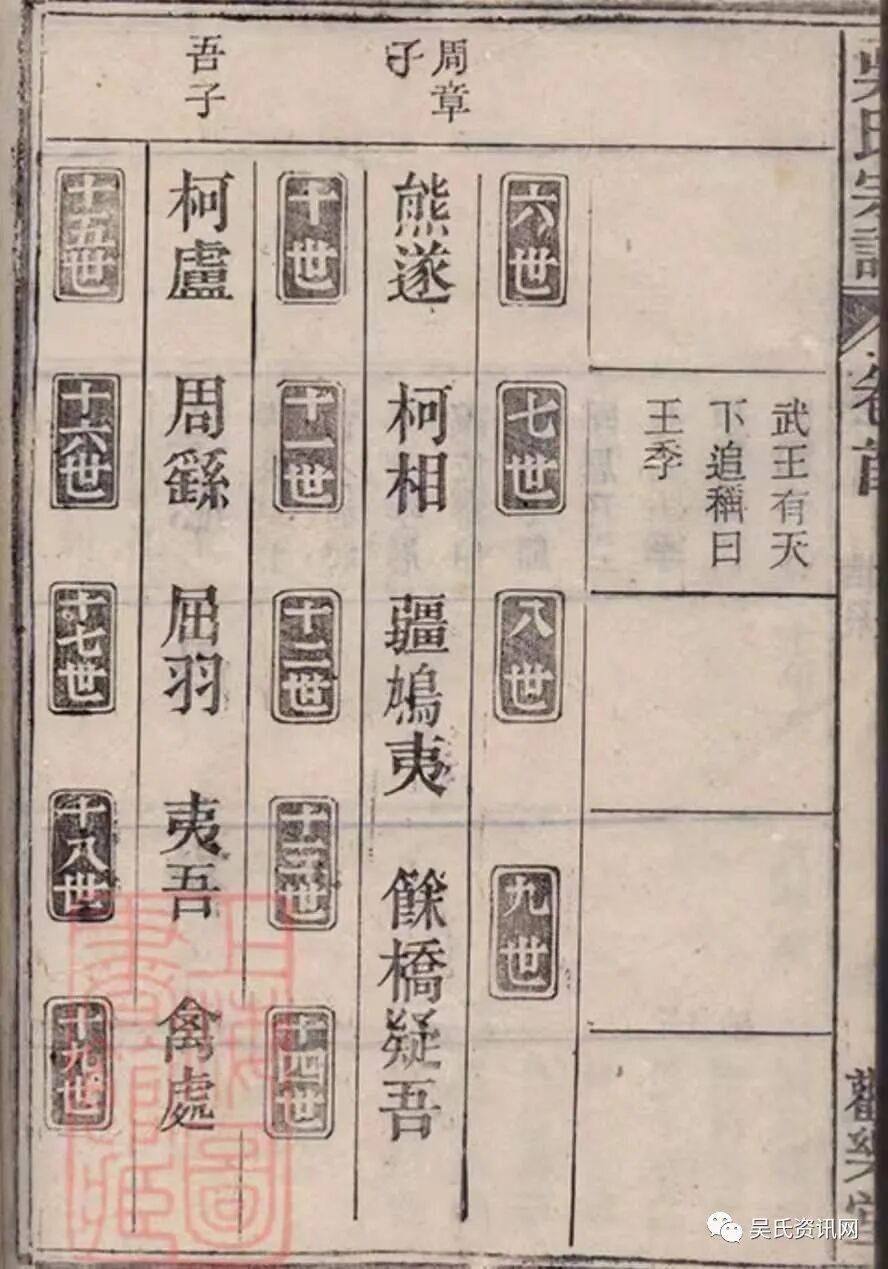 吳氏宗譜
卷首
觀樂堂
武王有天
下追稱曰
王季
六世
七世
八世
九世
周章
子
熊遂
柯相
疆鳩夷
餘橋疑吾
十世
十一世
十二世
十三世
十四世
吾子
柯盧
周繇
屈羽
夷吾
禽處
十五世
十六世
十七世
十八世
十九世
上海圖
書館藏
吴氏资讯网